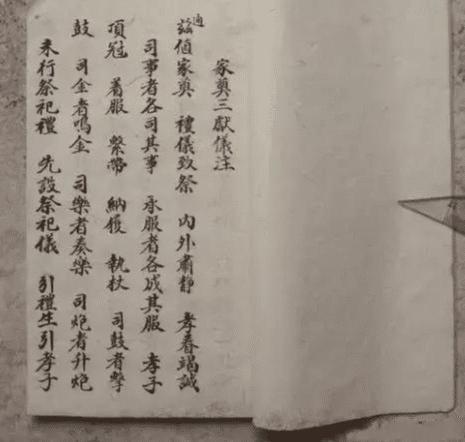 家奠三獻儀注
通
兹值家奠 禮儀致祭 內外肅静 孝眷竭誠
司事者各司其事 承服者各成其服 孝子
頂冠 着服 繫帶 納履 執杖 司鼓者擊
鼓 司金者鳴金 司樂者奏樂 司炮者升炮
未行祭祀禮 先設祭祀儀 引禮生引孝子